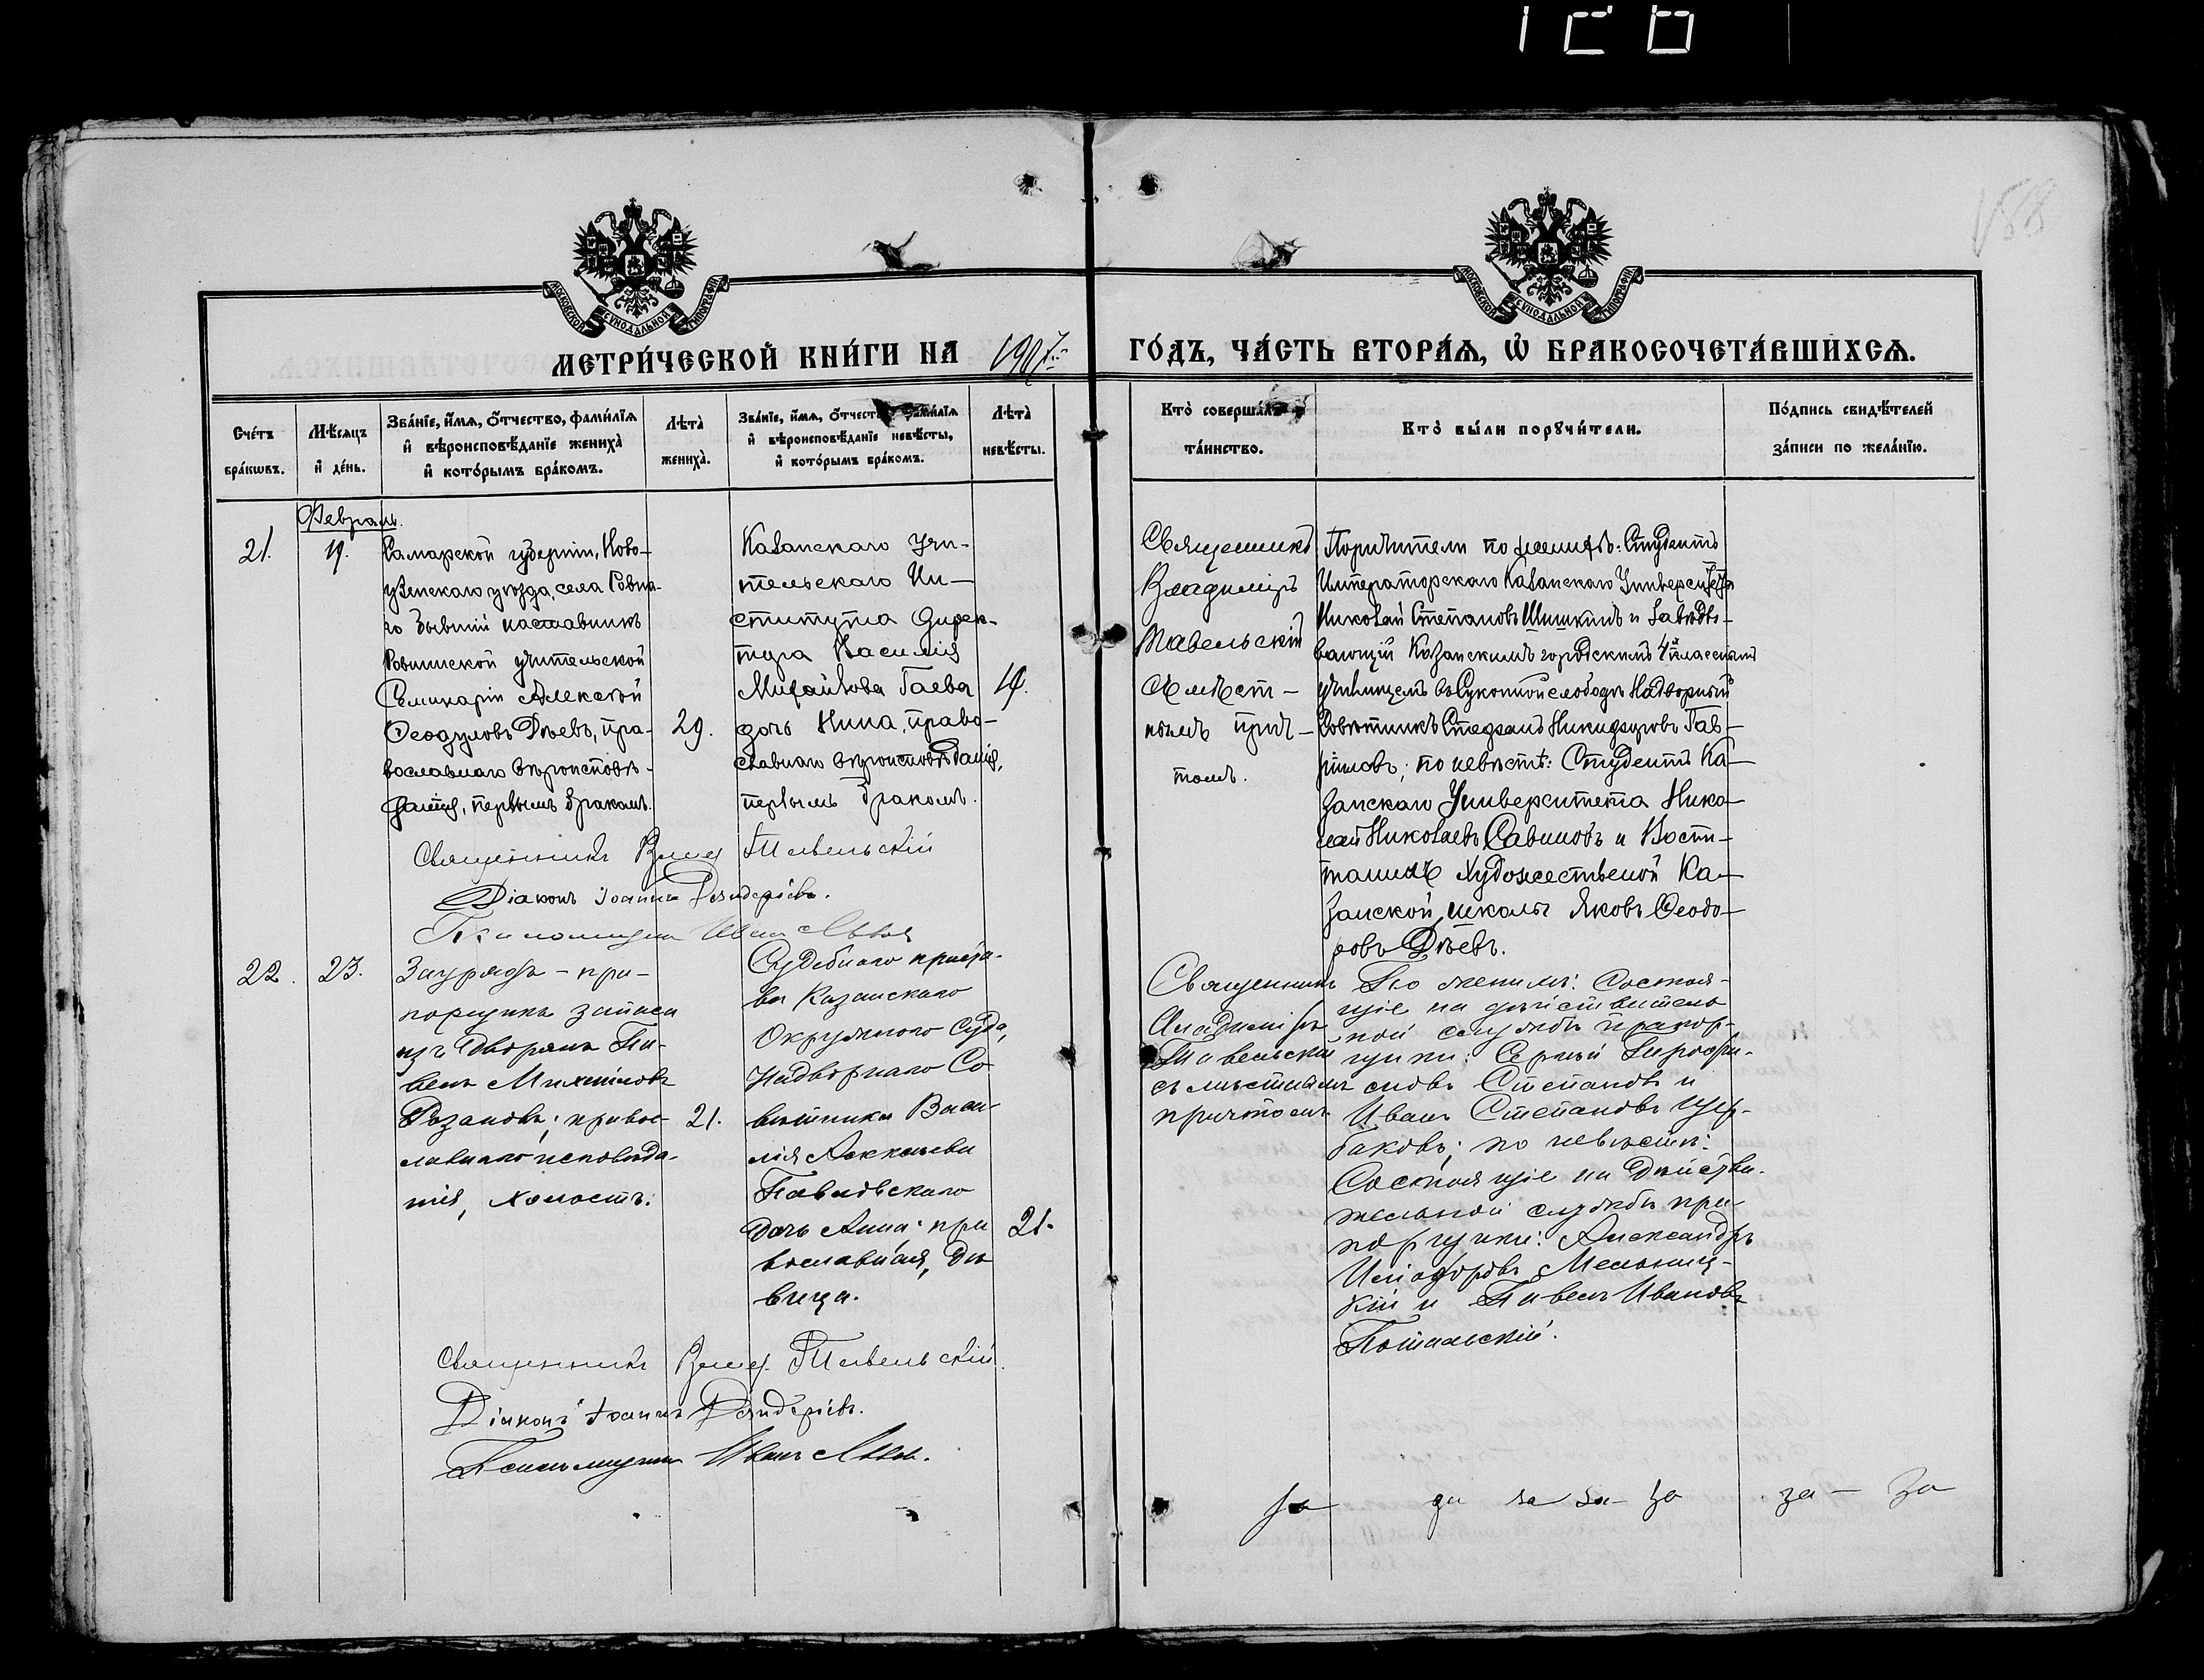 158
МОСКОВСКОЙ СУНОДАЛЬНОЙ ТИПОГРАФІИ
МОСКОВСКОЙ СУНОДАЛЬНОЙ ТИПОГРАФІИ
МЕТРИ́ЧЕСКОЙ КНИ́ГИ НА 1907й ГО́ДЪ, ЧА́СТЬ ВТОРА́Я, Ѽ БРАКОСОЧЕТА́ВШИХСЯ.
Сче́тъ бра́кѡвъ.
Мѣ́сяцъ и҆ де́нь.
Зва́нїе, и҆́мя, ѻ҆́тчество, фами́лїя
и҆ вѣроисповѣ́данїе жениха̀
и҆ кото́рымъ бра́комъ.
Лѣта̀ жениха̀.
Зва́нїе, и҆́мя, ѻ҆́тчество, фами́лїя
и҆ вѣроисповѣ́данїе невѣ́сты,
и҆ кото́рымъ бра́комъ.
Лѣта̀ невѣ́сты.
Кто̀ соверша́лъ та́инство.
Кто̀ бы́ли порꙋчи́тели.
По́дпись свидѣ́телей
за́писи по жела́нїю.
Февраль.
21.
Самарской губерніи, Ново-
узенскаго уѣзда, села Ровна-
го бывшій наставникъ
Ровнинской учительской
Семинаріи Алексѣй
Ѳеодуловъ Дѣевъ, пра-
вославнаго вѣроисповѣ-
данія, первымъ бракомъ.
29.
Казанскаго Учи-
тельскаго Ин-
ститута Дирек-
тора Василія
Михайлова Гаева
дочь Нина, право-
славнаго вѣроисповѣданія,
первымъ бракомъ.
19.
Священникъ
Владиміръ
Тавельскій
съ мѣст-
нымъ прич-
томъ.
Поручители по женихѣ: Студентъ
Императорскаго Казанскаго Университета
Николай Степановъ Шишкинъ и Завѣды-
вающій Казанскимъ городскимъ 4х класснымъ
училищемъ въ Суконной слободѣ Надворный
Совѣтникъ Стефанъ Никифоровъ Гав-
риловъ; по невѣстѣ: Студентъ Ка-
занскаго Университета Нико-
лай Николаевъ Савиновъ и Воспи-
танникъ Художественой Ка-
занской школы Яковъ Ѳеодо-
ровъ Дѣевъ.
Священникъ Влад Тавельскій
Діаконъ Іоаннъ
Псаломщикъ Иван
22.
23.
Заурядъ-пра-
порщикъ запаса
изъ Дворянъ Па-
велъ Михайловъ
Розановъ; правос-
лавнаго исповѣда-
нія, холостъ.
21.
Судебнаго приста-
ва Казанскаго
Окружнаго Суда,
Надворнаго Со
вѣтника Васи-
лія Алексѣева
Павловскаго
дочь Анна; пра
вославная, дѣ
вица.
21.
Священникъ
Владиміръ
Тавельскій
съ мѣстнымъ
причтомъ
По женихѣ: Состоя-
щіе на дѣйствитель
ной службѣ прапор-
щики: Сергѣй
сновъ Степановъ и
Иванъ Степановъ Щер-
баковъ; по невѣстѣ:
Состоящіе на Дѣйстви-
тельной службѣ пра-
порщики: Александръ
Исидоровъ Мельниц-
кій и Павелъ Ивановъ
Священникъ Влад. Тавельскій.
Діаконъ Іоаннъ
Псаломщикъ Иванъ
за да за за за за - за